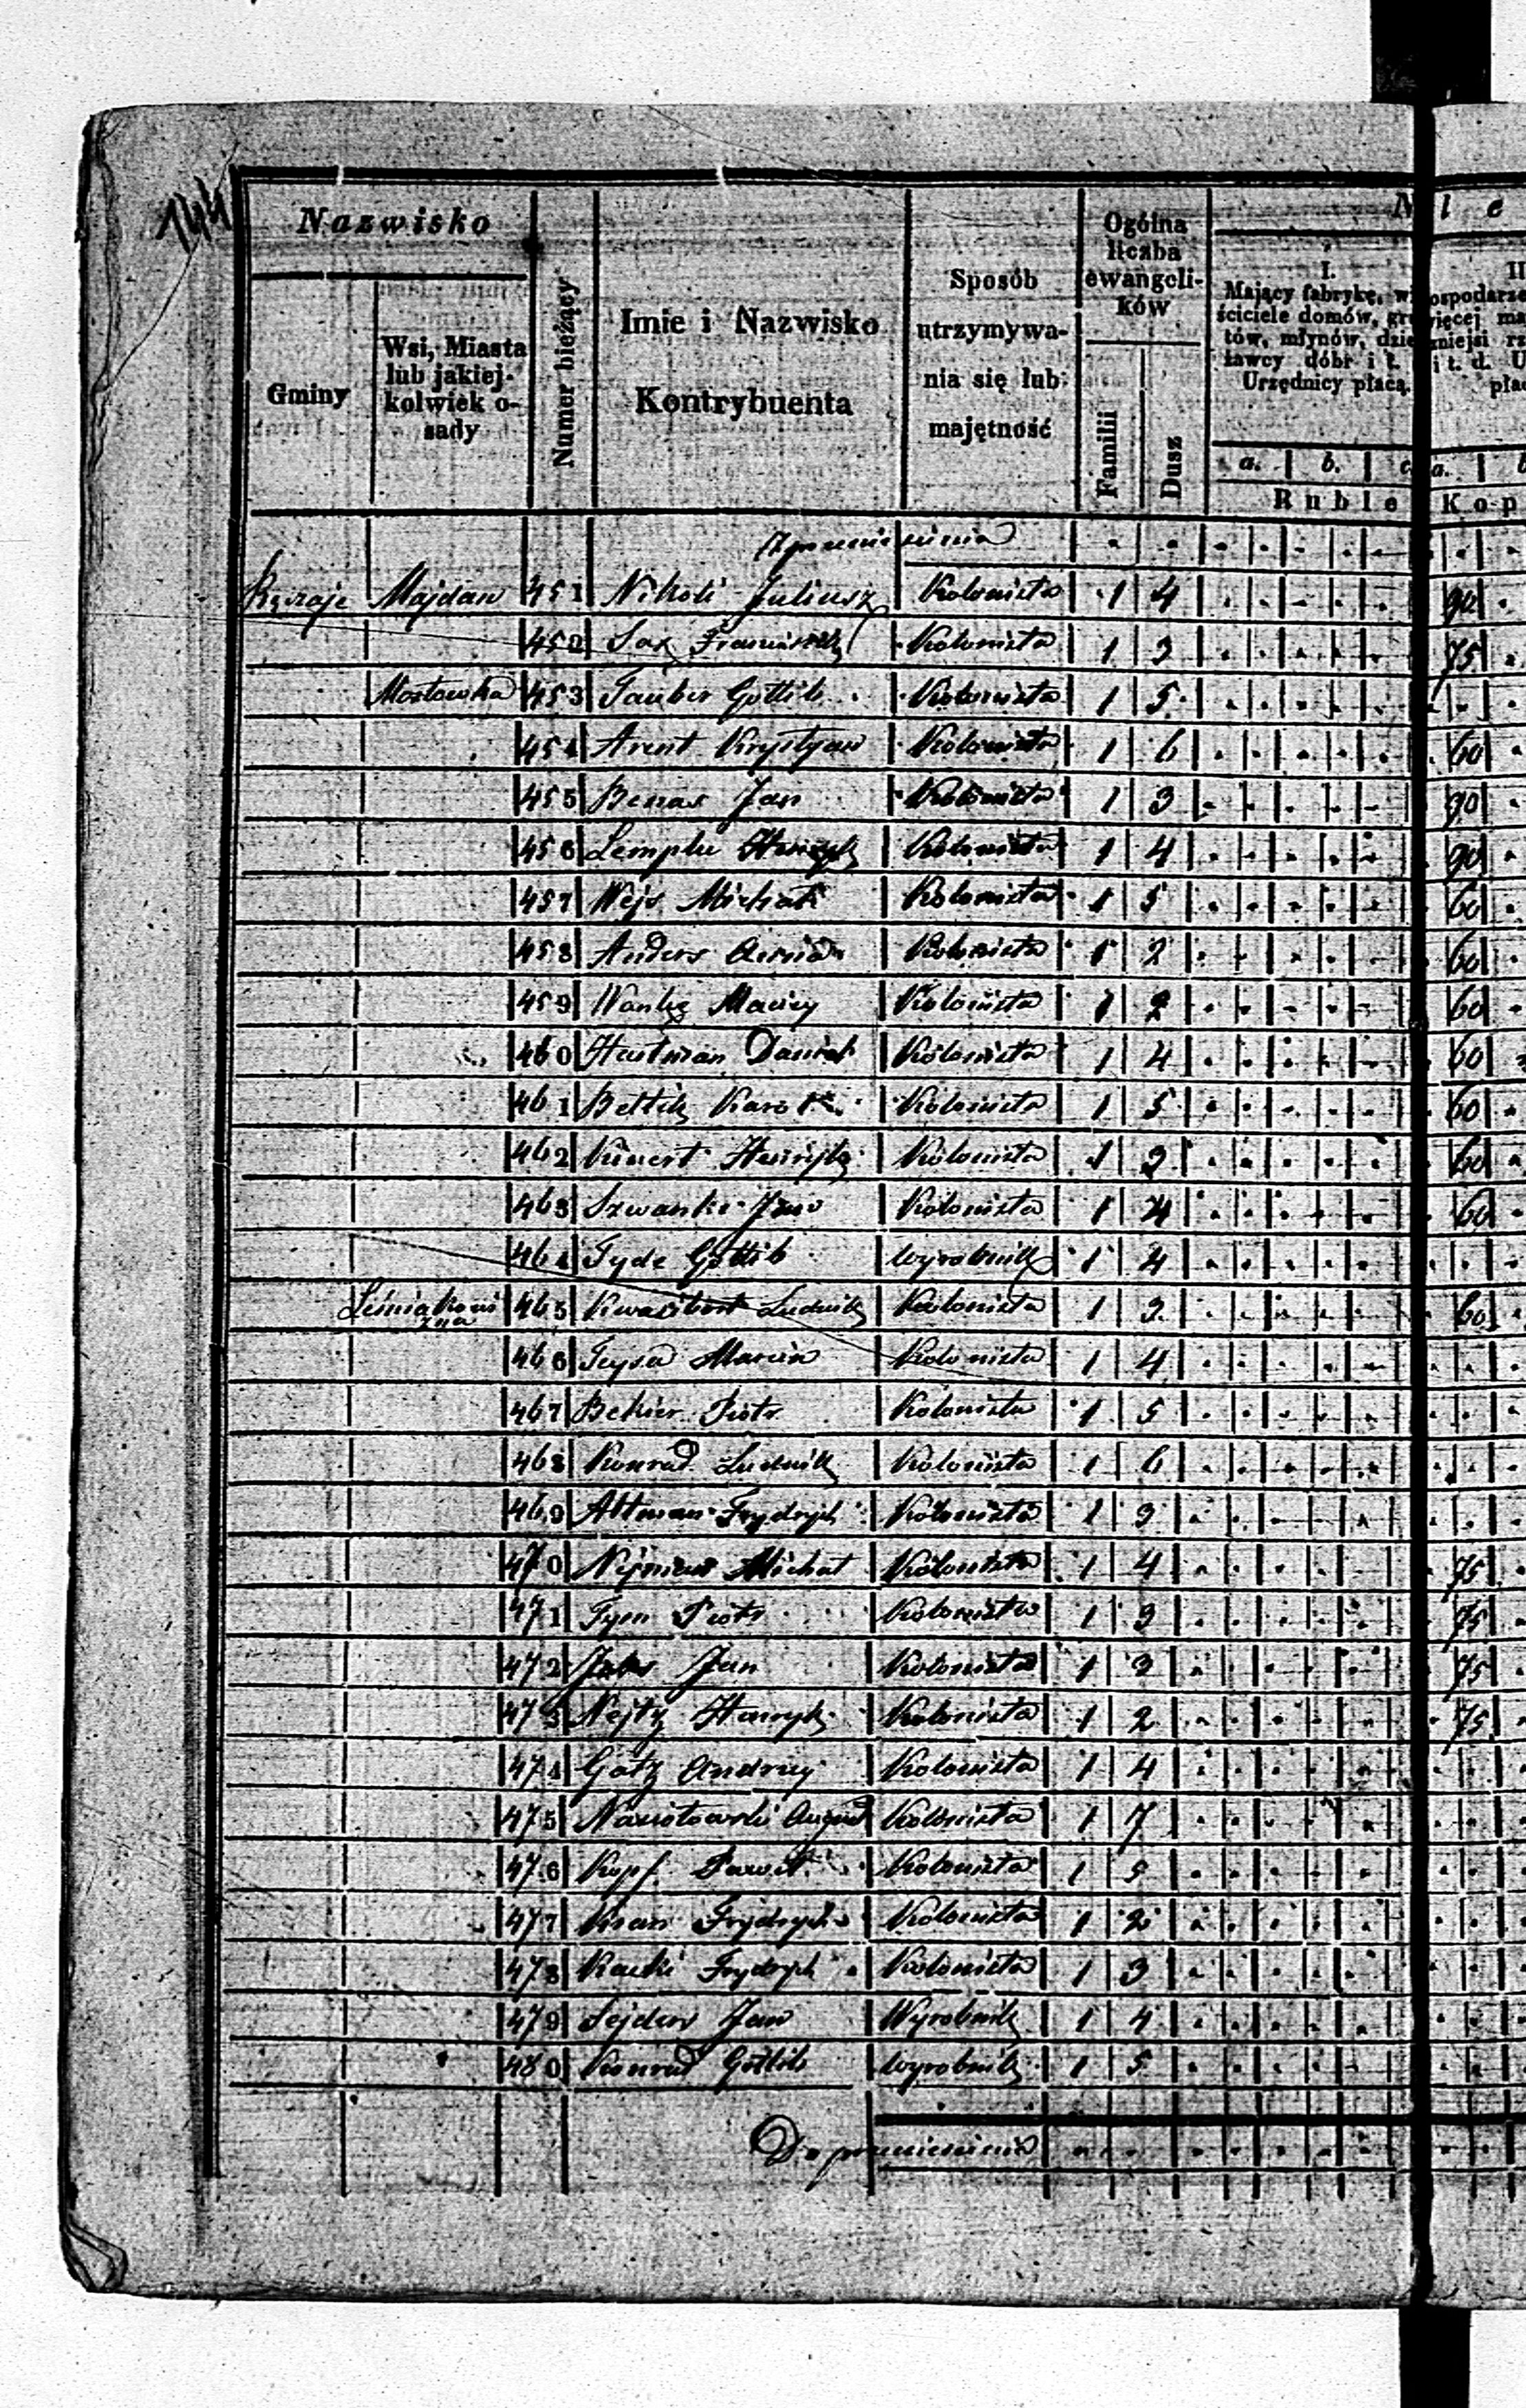 144
Nazwisko
Gminy
Wsi, Miasta
lub jakiej-
kolwiek o-
sady
Numer bieżący
Imie i Nazwisko
Kontrybuenta
Sposób
utrzymywa-
nia się lub
majętność
Ogólna
liczba
ewangeli-
ków
Familii
Dusz
N l e
I.
Mający fabrykę, w
ściciele domów, gr
tów, młynów, dzie
ławcy dóbr i t.
Urzędnicy płacą.
II
ospodarze
więcej ma
mniejsi rz
i t. d. U
płac
a. b. c. a.
Ruble Kop
Z przeniesienia
Ręczaje Majdan 451 Nikoli Juliusz Kolonista 1 4 90
452 Sax Franciszek Kolonista 1 3 75
Mostowka 453 Tauber Gottlib Kolonista 1 5
454 Arent Krystyan Kolonista 1 6 60
455 Benas Jan Kolonista 1 3 90
456 Lempke Henryk Kolonista 1 4 90
457 Wejs Michał Kolonista 1 5 60
458 Anders Kolonista 1 2 60
459 Maciej Kolonista 1 2 60
460 Hartman Daniel Kolonista 1 4 60
461 Beltik Karol Kolonista 1 5 60
462 Henryk Kolonista 1 3 60
463 Szwanke Jan Kolonista 1 4 60
464 Tyde Gottlib wyrobnik 1 4
Leśniakowizna 465 Ludwik Kolonista 1 3 60
466 Marcin Kolonista 1 4
467 Bekier Piotr Kolonista 1 5
468 Konrad Ludwik Kolonista 1 6
469 Altman Frydrych Kolonista 1 3
470 Michał Kolonista 1 4 75
471 Tym Piotr Kolonista 1 3 75
472 Jan Kolonista 1 3 75
473 Nejtz Henryk Kolonista 1 2 75
474 Gotz Andrzej Kolonista 1 4
475 August Kolonista 1 7
476 Kopf Kolonista 1 5
477 Frydrych Kolonista 1 2
478 Frydrych Kolonista 1 3
479 Sejdler Jan Wyrobnik 1 4
480 Konrad Gottlib wyrobnik 1 5
Do przeniesienia